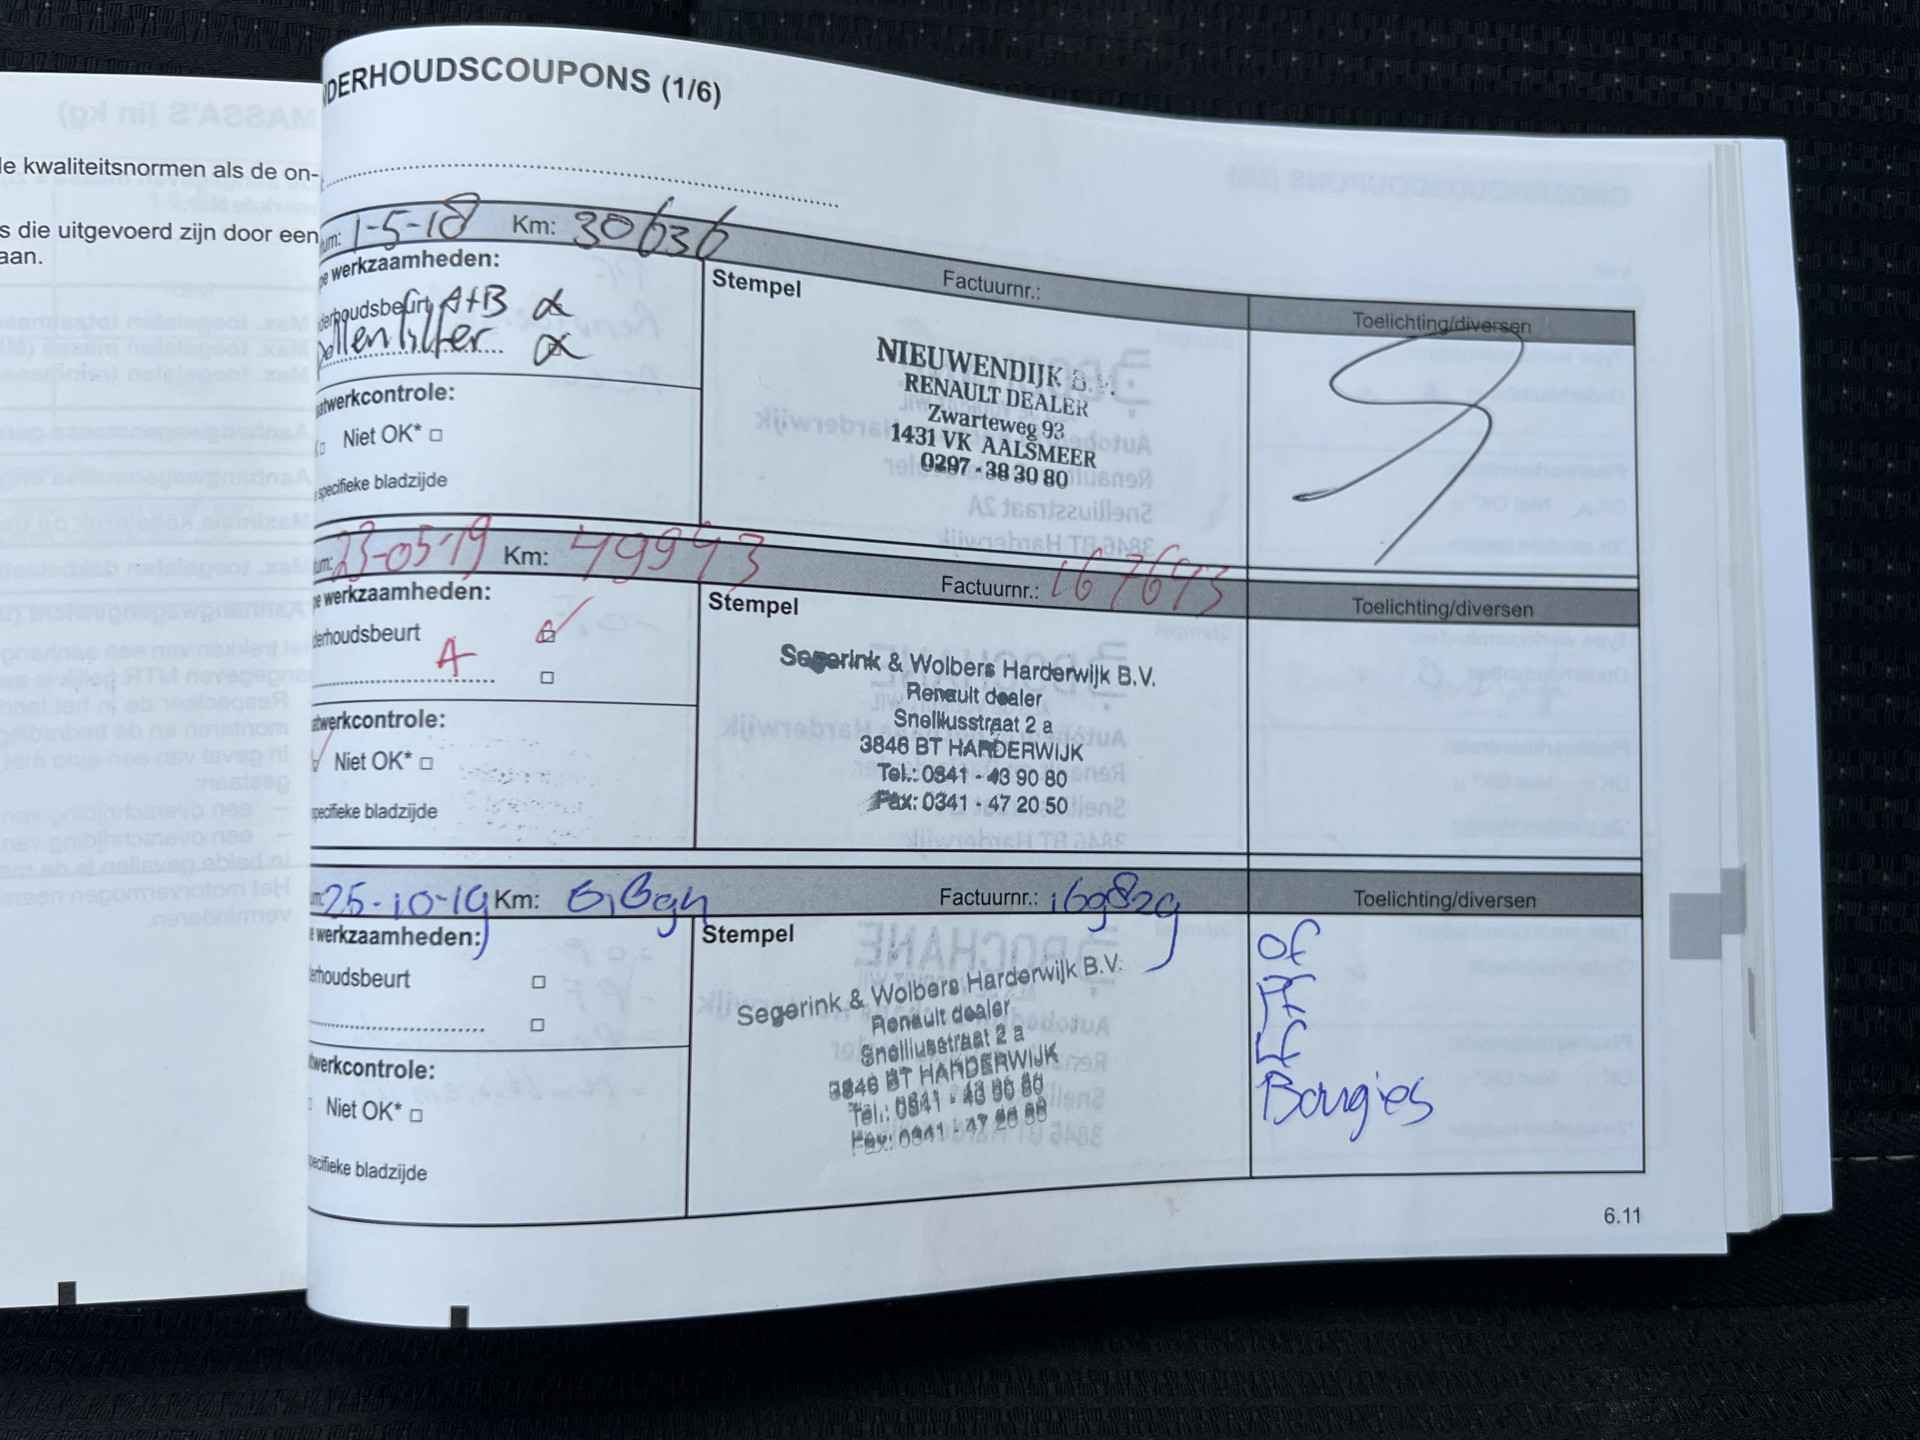 le kwaliteitsnormen als de on-
s die uitgevoerd zijn door een
aan.
DERHOUDSCOUPONS (1/6)
um: 1-5-18 Km: 30636 Factuurnr.: Toelichting/diversen
e werkzaamheden:
derhoudsbeurt A+B
Pollenfilter
atwerkcontrole:
Niet OK*
specifieke bladzijde
Stempel
NIEUWENDIJK B.V.
RENAULT DEALER
Zwarteweg 93
1431 VK AALSMEER
0297 - 38 30 80
um: 23-05-19 Km: 49993 Factuurnr.: 167693 Toelichting/diversen
e werkzaamheden:
derhoudsbeurt
A
atwerkcontrole:
Niet OK*
specifieke bladzijde
Stempel
Segerink & Wolbers Harderwijk B.V.
Renault dealer
Snelliusstraat 2 a
3846 BT HARDERWIJK
Tel.: 0341 - 43 90 80
Fax: 0341 - 47 20 50
25-10-19 Km: Factuurnr.: 169829 Toelichting/diversen
e werkzaamheden:
erhoudsbeurt
twerkcontrole:
Niet OK*
pecifieke bladzijde
Stempel
Segerink & Wolbers Harderwijk B.V.
Renault dealer
Snelliusstraat 2 a
3846 BT HARDERWIJK
Tel.: 0341 - 43 90 80
Fax: 0341 - 47 20 50
OF
PF
LF
Bougies
6.11